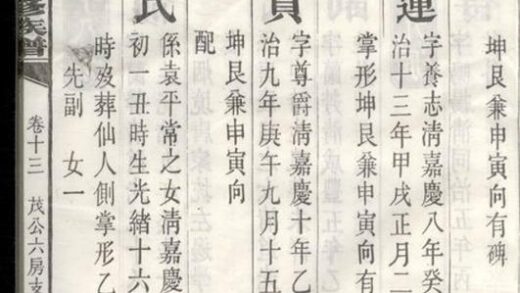 坤艮兼申寅向有碑
蓮
字養志清嘉慶八年癸
治十三年甲戌正月二
掌形坤艮兼申寅向有
貢
字尊爵清嘉慶十年乙
治九年庚午九月十五
坤艮兼申寅向
配
氏
係袁平常之女清嘉慶
初一丑時生光緒十六
時歿葬仙人側掌形乙
先副 女一
族譜
卷十三 茂公六房支